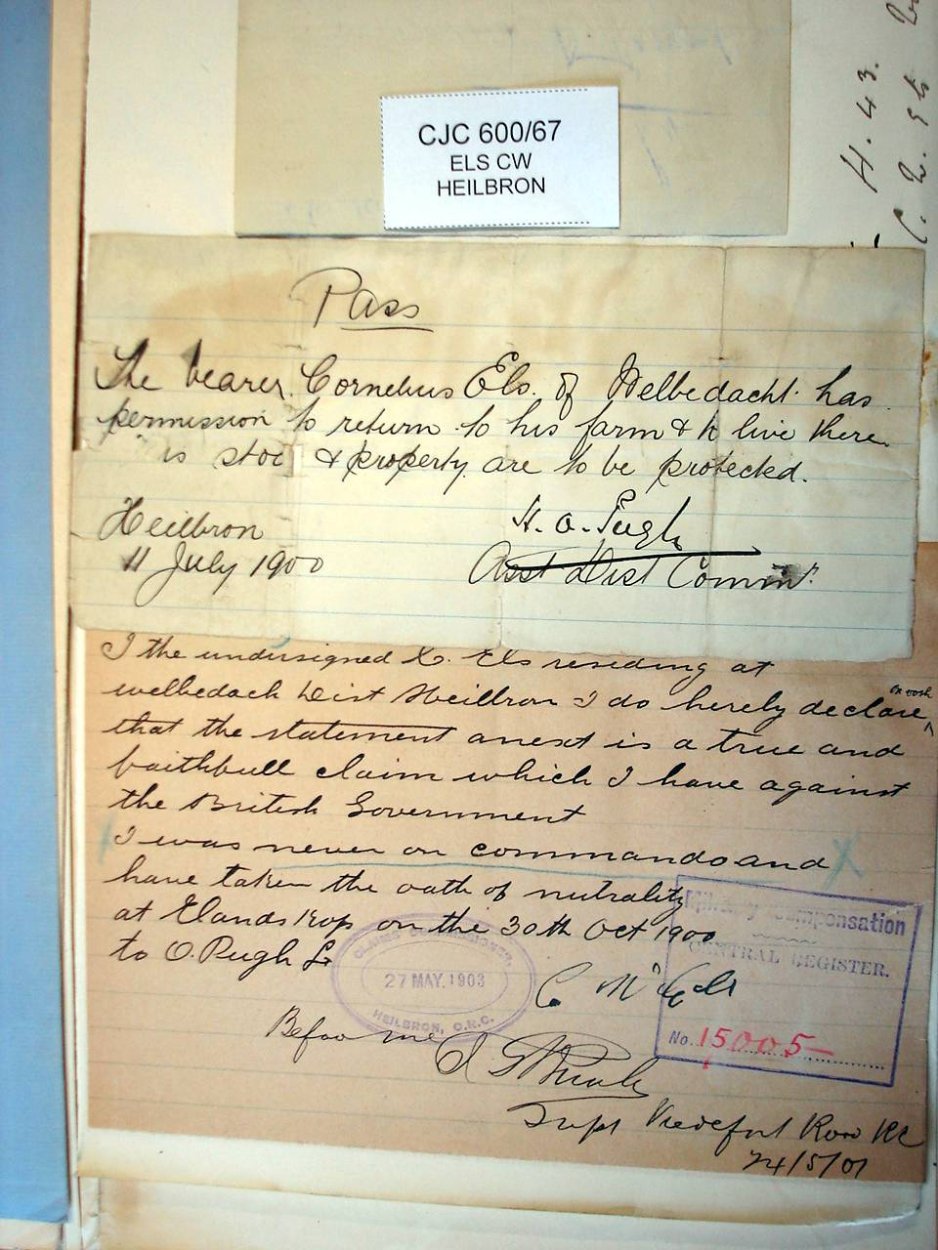 H. 43.
CJC 600/67
ELS CW
HEILBRON
Pass
The bearer Cornelius Els. of Welbedacht has
permission to return to his farm & to live there
is stoc & property are to be protected.
Heilbron
11 July 1900
H. O. Pugh
Asst Dist Commr.
I the undersigned C. Els residing at
welbedach Dist Heilbron I do hereby declare, on oath
that the statement anext is a true and
faithfull claim which I have against
the British Government
I was never on commando and
have taken the oath of nutrality
at Elands Kop on the 30th Oct 1900
to O. Pugh Lt
Military Compensation
CENTRAL REGISTER.
No. 15005
CLAIMS COMMISSIONER,
27 MAY. 1903
HEILBRON, O.R.C.
C W Els
Before me
Supt Vredefort Road RC
24/5/01